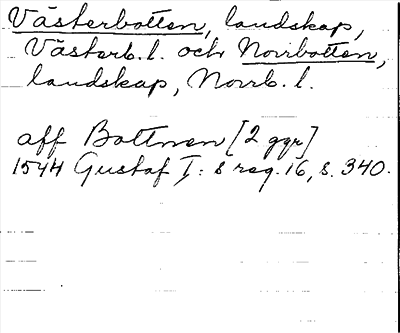 Västerbotten, landskap,
Västerb. l. och Norrbotten,
landskap, Norrb. l.
aff Botnen [2 ggr]
1544 Gustaf I: s reg. 16, s. 340.